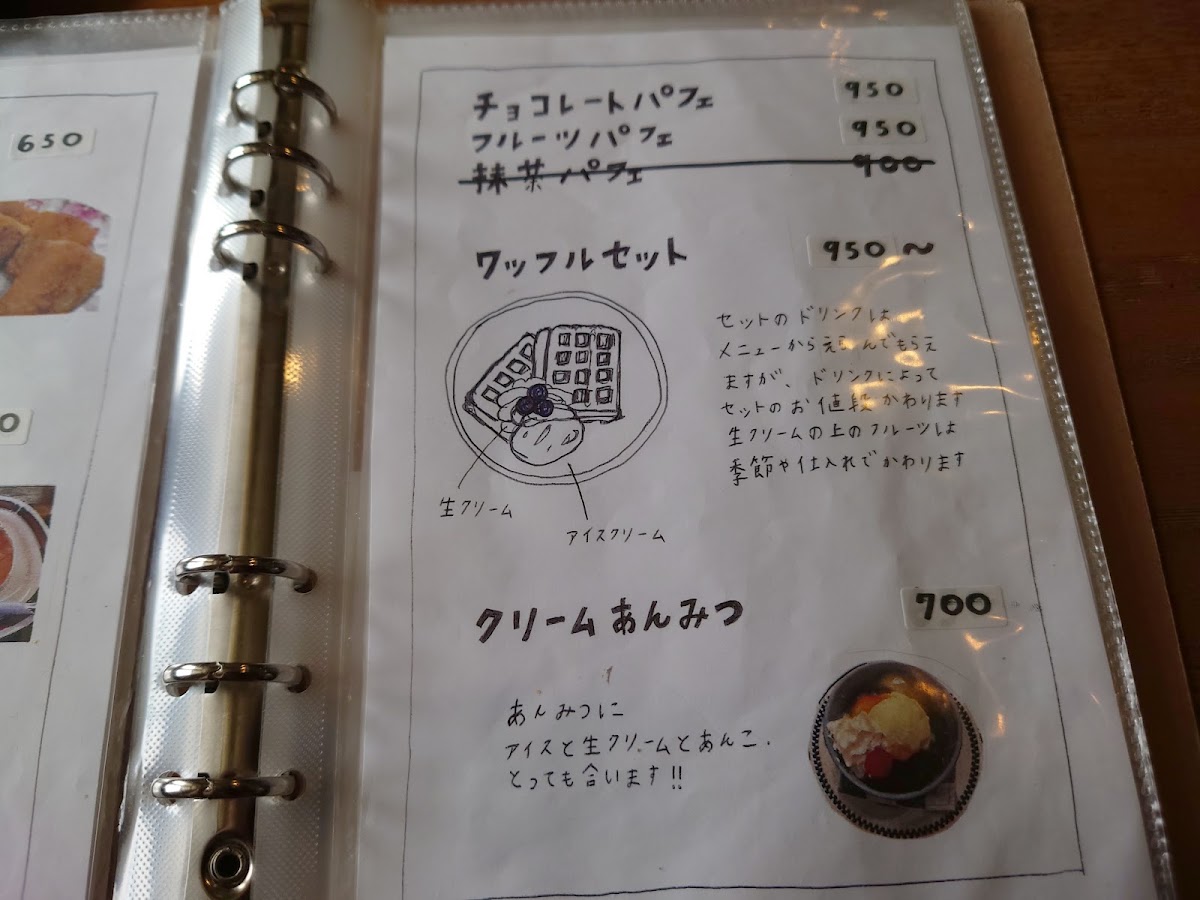 650
0
チョコレートパフェ 950
フルーツパフェ 950
抹茶パフェ 900
ワッフルセット 950〜
セットのドリンクは
メニューからえらんでもらえ
ますが、ドリンクによって
セットのお値段かわります
生クリームの上のフルーツは
季節や仕入れでかわります
生クリーム
アイスクリーム
クリームあんみつ 700
あんみつに
アイスと生クリームとあんこ.
とっても合います!!